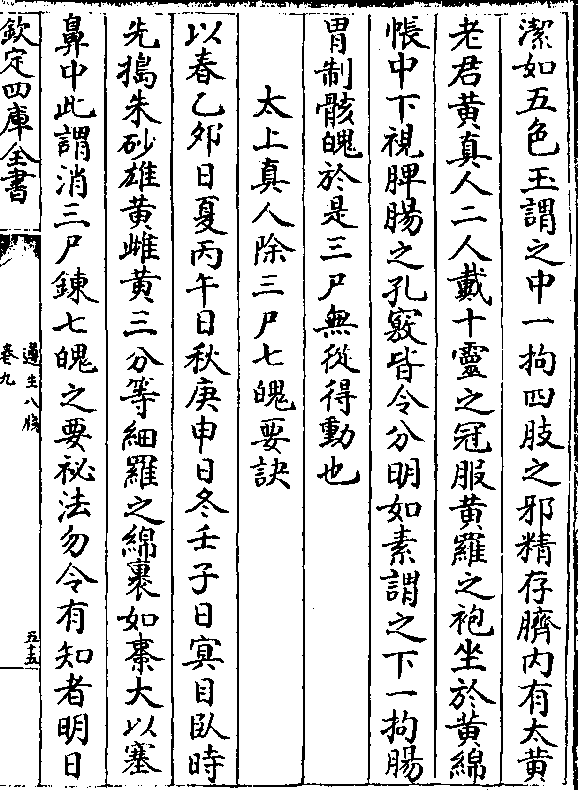 潔如五色玉謂之中一拘四肢之邪精存臍内有太黄
老君黄真人二人戴十靈之冠服黄羅之袍坐於黄綿
帳中下視脾腸之孔竅皆令分明如素謂之下一拘腸
胃制骸魄於是三尸無從得動也
太上真人除三尸七魄要訣
以春乙夘日夏丙午日秋庚申日冬壬子日㝠目臥時
先搗朱砂雄黄雌黄三分等細羅之綿裹如棗大以塞
鼻中此謂消三尸鍊七魄之要祕法勿令有知者明日
欽定四庫全書
遵生八牋
卷九
五十五